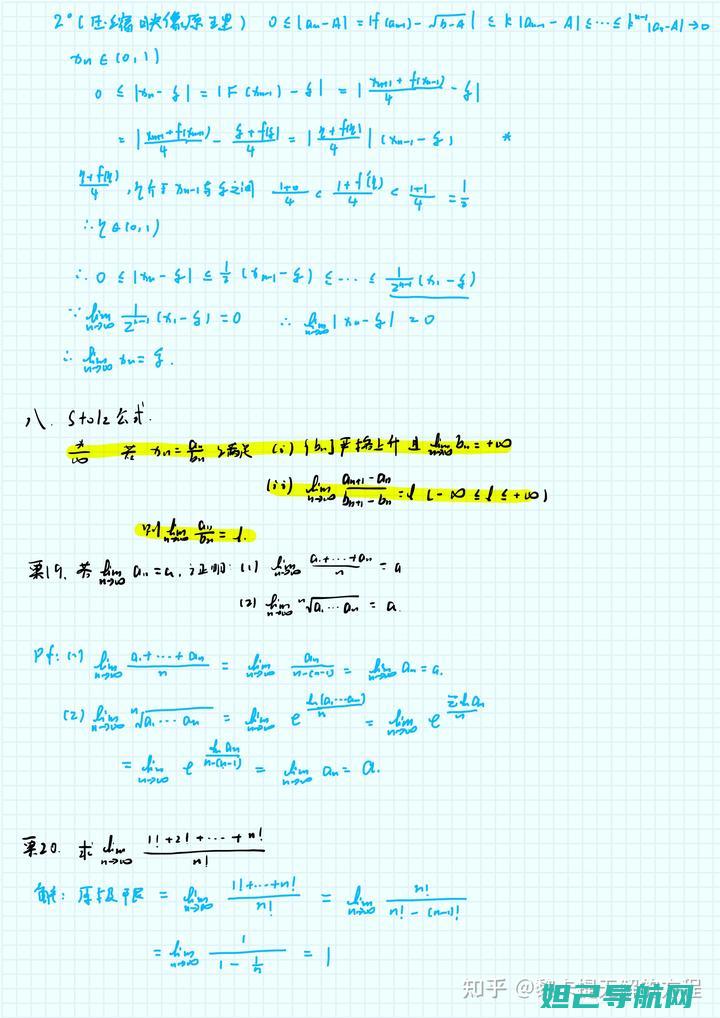 2° (压缩映像原理) 0 ≤ |an-A| = |f(an-1) - √(b-A)| ≤ k|an-1 - A| ≤ ··· ≤ kⁿ⁻¹|a1-A| → 0
xn ∈ (0, 1)
0 ≤ |xn - ξ| = |F(xn-1) - ξ| = |(xn-1 + f(xn-1))/4 - ξ|
= |(xn-1 + f(xn-1))/4 - (ξ + f(ξ))/4| = |(η + f(η))/4| (xn-1 - ξ) *
(η + f(η))/4, η介于xn-1与ξ之间 (1+0)/4 < (1 + f'(η))/4 < (1+1)/4 = 1/2
∴ η ∈ (0, 1)
∴ 0 ≤ |xn - ξ| ≤ 1/2 (xn-1 - ξ) ≤ ··· ≤ 1/2ⁿ⁻¹ (x1 - ξ)
∵ lim n→∞ 1/2ⁿ⁻¹ (x1 - ξ) = 0 ∴ lim n→∞ |xn - ξ| = 0
∴ lim n→∞ xn = ξ.
八、Stolz公式.
*/∞ 若 xn = an/bn 满足 (i) {bn}严格上升且 lim n→∞ bn = +∞
(ii) lim n→∞ (an+1 - an)/(bn+1 - bn) = l (-∞ ≤ l ≤ +∞)
则 lim n→∞ an/bn = l.
例19. 若 lim n→∞ an = a, 证明: (1) lim n→∞ (a1 + ··· + an)/n = a
(2) lim n→∞ ⁿ√(a1 ··· an) = a.
Pf: (1) lim n→∞ (a1 + ··· + an)/n = lim n→∞ an/(n-(n-1)) = lim n→∞ an = a.
(2) lim n→∞ ⁿ√(a1 ··· an) = lim n→∞ e^(ln(a1···an)/n) = lim n→∞ e^(Σln an/n)
= lim n→∞ e^(ln an/(n-(n-1))) = lim n→∞ an = a.
例20. 求 lim n→∞ (1! + 2! + ··· + n!)/n!
解: 原极限 = lim n→∞ (1! + ··· + n!)/n! = lim n→∞ n!/(n! - (n-1)!)
= lim n→∞ 1/(1 - 1/n) = 1
妲己导航网